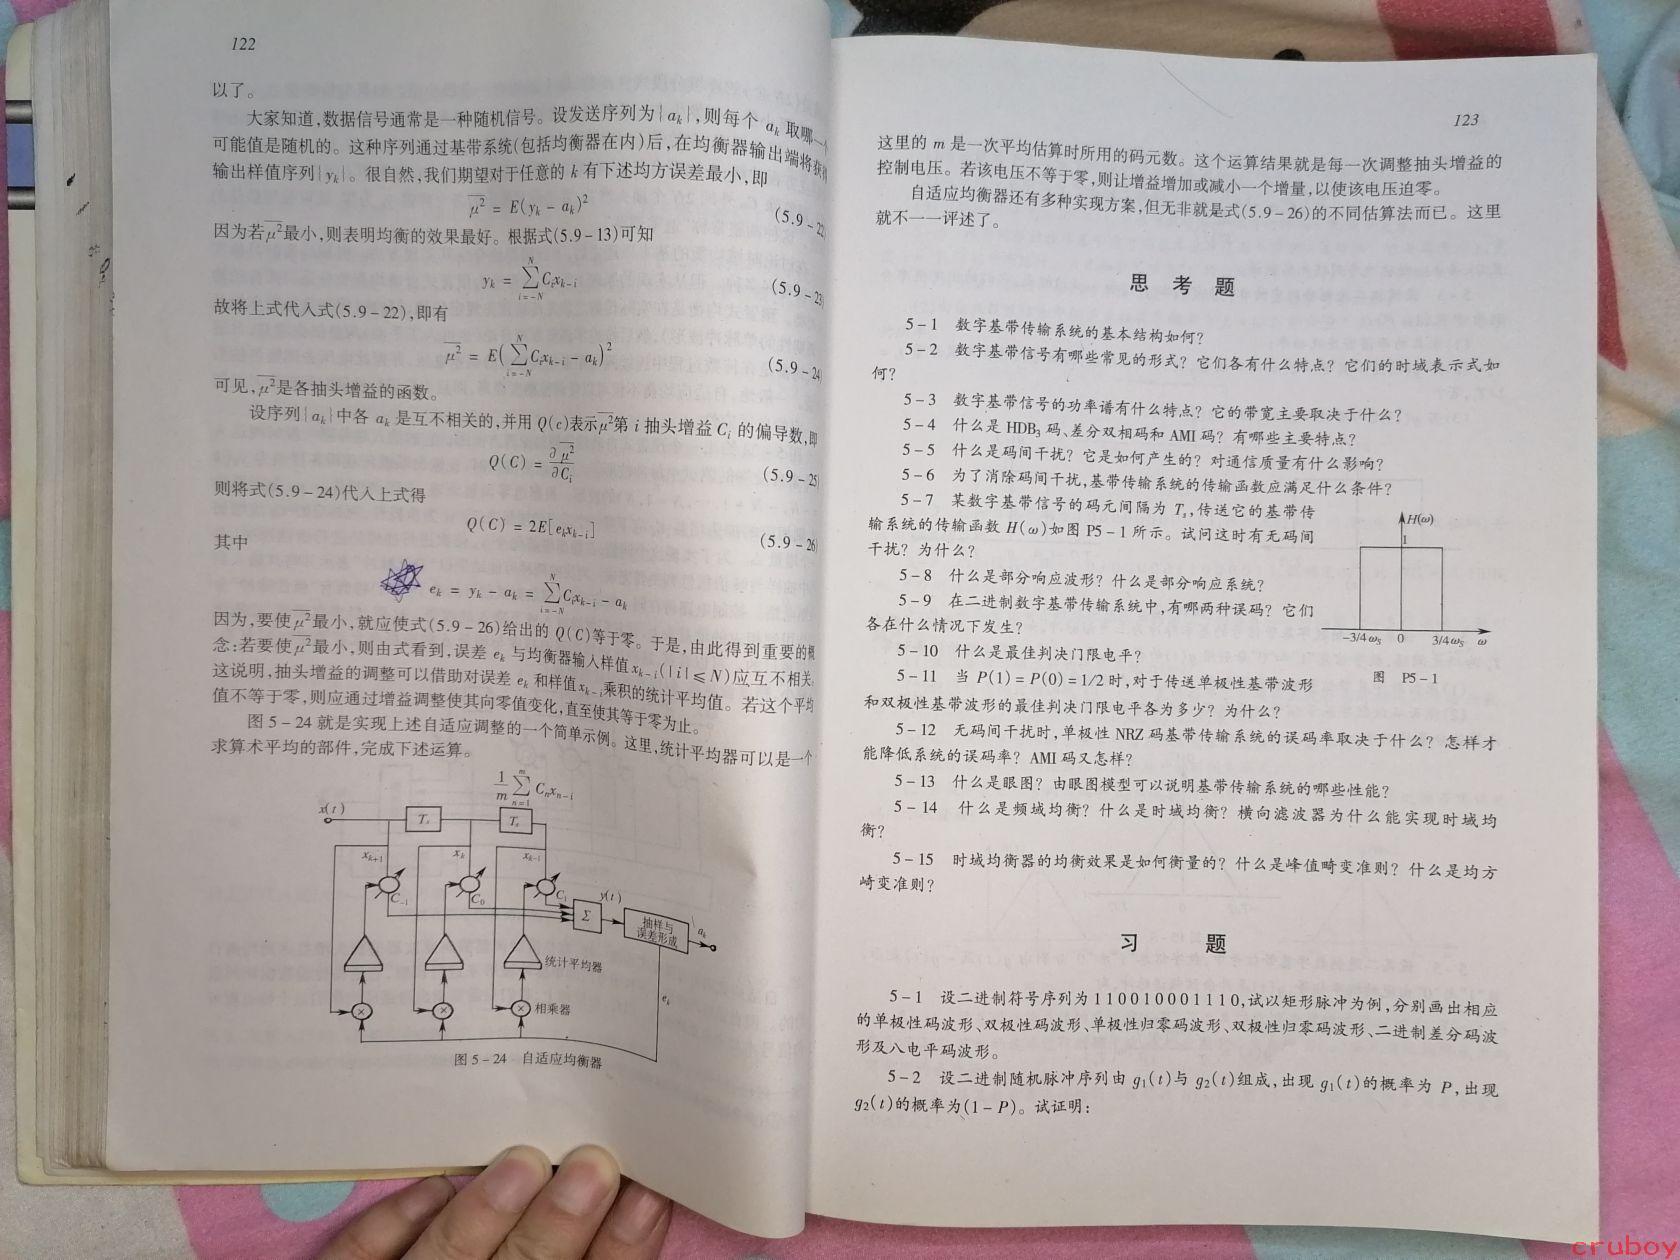 122
以了。
大家知道,数据信号通常是一种随机信号。设发送序列为{aₖ},则每个 aₖ 取哪一个
可能值是随机的。这种序列通过基带系统(包括均衡器在内)后,在均衡器输出端将获得
输出样值序列{yₖ}。很自然,我们期望对于任意的 k 有下述均方误差最小,即
\overline{μ²} = E(yₖ − aₖ)² (5.9−22)
因为若\overline{μ²}最小,则表明均衡的效果最好。根据式(5.9−13)可知
yₖ = ∑_{i=−N}^{N} Cᵢxₖ₋ᵢ (5.9−23)
故将上式代入式(5.9−22),即有
\overline{μ²} = E(∑_{i=−N}^{N} Cᵢxₖ₋ᵢ − aₖ)² (5.9−24)
可见,\overline{μ²}是各抽头增益的函数。
设序列{aₖ}中各 aₖ 是互不相关的,并用 Q(c)表示\overline{μ²}第 i 抽头增益 Cᵢ 的偏导数,即
Q(C) = ∂\overline{μ²}/∂Cᵢ (5.9−25)
则将式(5.9−24)代入上式得
Q(C) = 2E[eₖxₖ₋ᵢ] (5.9−26)
其中
eₖ = yₖ − aₖ = ∑_{i=−N}^{N} Cᵢxₖ₋ᵢ − aₖ
因为,要使\overline{μ²}最小,就应使式(5.9−26)给出的 Q(C)等于零。于是,由此得到重要的概
念:若要使\overline{μ²}最小,则由式看到,误差 eₖ 与均衡器输入样值 xₖ₋ᵢ(|i|≤N)应互不相关。
这说明,抽头增益的调整可以借助对误差 eₖ 和样值 xₖ₋ᵢ乘积的统计平均值。若这个平均
值不等于零,则应通过增益调整使其向零值变化,直至使其等于零为止。
图 5−24 就是实现上述自适应调整的一个简单示例。这里,统计平均器可以是一个
求算术平均的部件,完成下述运算。
1/m ∑_{n=1}^{m} Cₙxₙ₋ᵢ
x(t)
Tₛ
Tₛ
xₖ₊₁
xₖ
xₖ₋₁
C₋₁
C₀
C₁
Σ
y(t)
抽样与
误差形成
aₖ
统计平均器
eₖ
×
×
×
相乘器
图 5−24 自适应均衡器
123
这里的 m 是一次平均估算时所用的码元数。这个运算结果就是每一次调整抽头增益的
控制电压。若该电压不等于零,则让增益增加或减小一个增量,以使该电压迫零。
自适应均衡器还有多种实现方案,但无非就是式(5.9−26)的不同估算法而已。这里
就不一一评述了。
思考题
5−1 数字基带传输系统的基本结构如何?
5−2 数字基带信号有哪些常见的形式?它们各有什么特点?它们的时域表示式如
何?
5−3 数字基带信号的功率谱有什么特点?它的带宽主要取决于什么?
5−4 什么是 HDB₃ 码、差分双相码和 AMI 码?有哪些主要特点?
5−5 什么是码间干扰?它是如何产生的?对通信质量有什么影响?
5−6 为了消除码间干扰,基带传输系统的传输函数应满足什么条件?
5−7 某数字基带信号的码元间隔为 Tₛ,传送它的基带传
输系统的传输函数 H(ω)如图 P5−1 所示。试问这时有无码间
干扰?为什么?
5−8 什么是部分响应波形?什么是部分响应系统?
5−9 在二进制数字基带传输系统中,有哪两种误码?它们
各在什么情况下发生?
5−10 什么是最佳判决门限电平?
5−11 当 P(1)=P(0)=1/2 时,对于传送单极性基带波形
和双极性基带波形的最佳判决门限电平各为多少?为什么?
H(ω)
1
−3/4ωₛ 0 3/4ωₛ ω
图 P5−1
5−12 无码间干扰时,单极性 NRZ 码基带传输系统的误码率取决于什么?怎样才
能降低系统的误码率?AMI 码又怎样?
5−13 什么是眼图?由眼图模型可以说明基带传输系统的哪些性能?
5−14 什么是频域均衡?什么是时域均衡?横向滤波器为什么能实现时域均
衡?
5−15 时域均衡器的均衡效果是如何衡量的?什么是峰值畸变准则?什么是均方
畸变准则?
习题
5−1 设二进制符号序列为110010001110,试以矩形脉冲为例,分别画出相应
的单极性码波形、双极性码波形、单极性归零码波形、双极性归零码波形、二进制差分码波
形及八电平码波形。
5−2 设二进制随机脉冲序列由 g₁(t)与 g₂(t)组成,出现 g₁(t)的概率为 P,出现
g₂(t)的概率为(1−P)。试证明:
cruboy